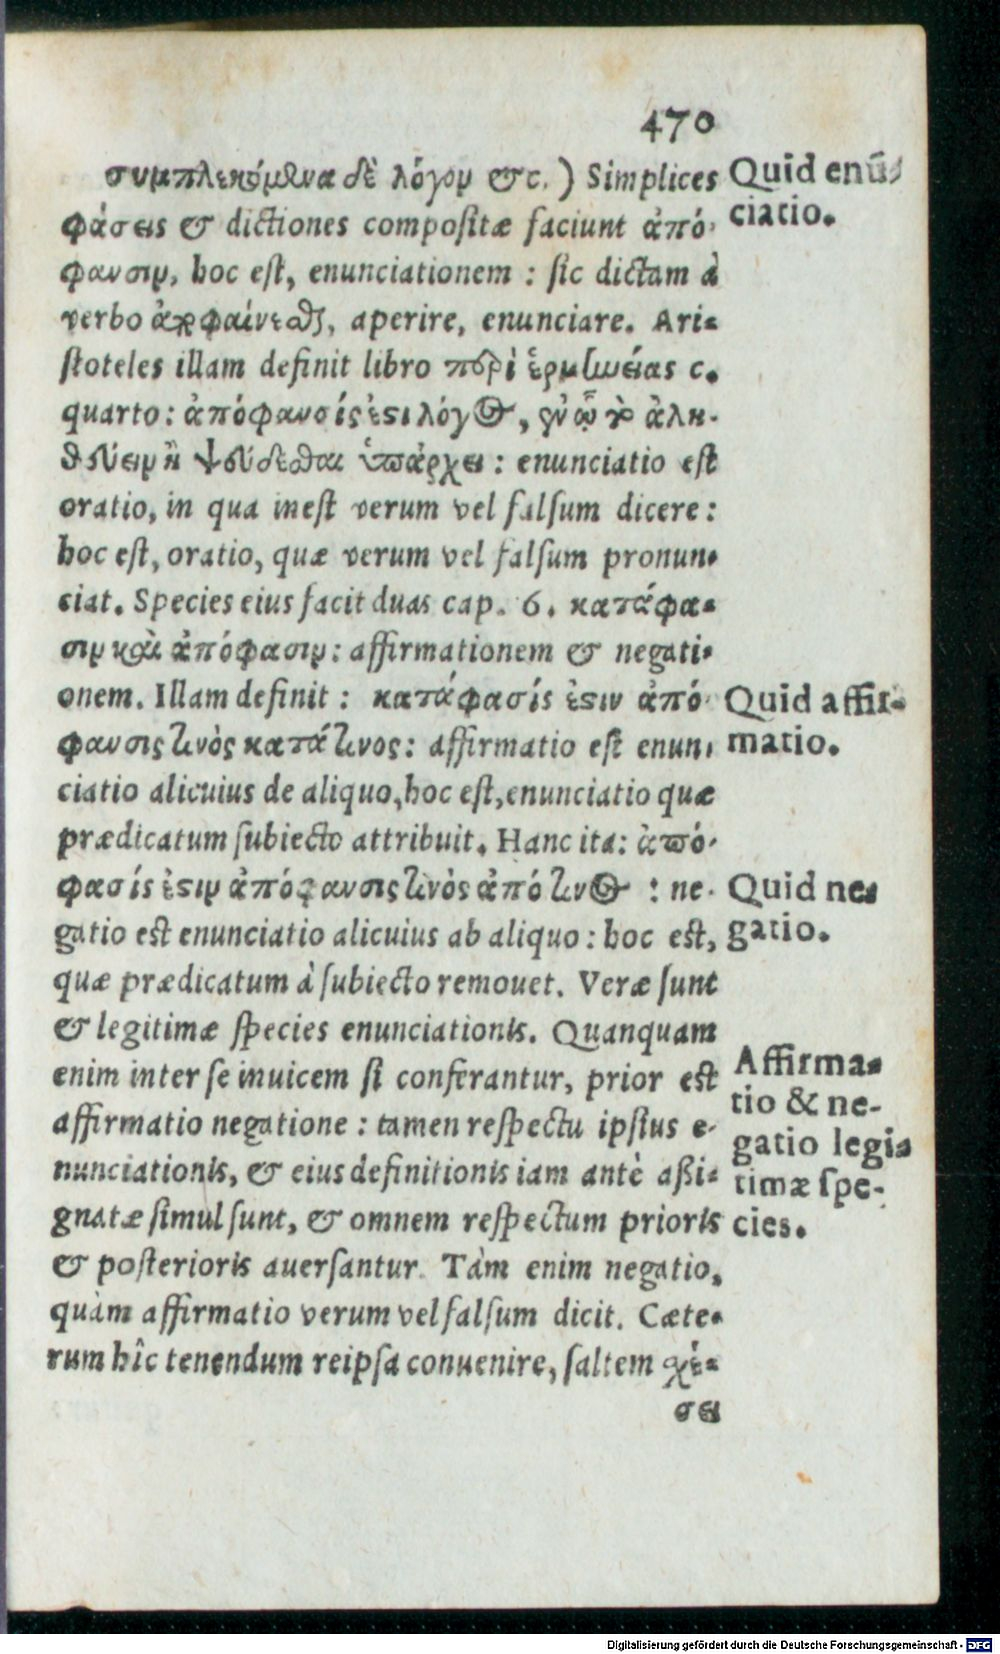 470
συμπλεκόμενα δὲ λόγον &c.) Simplices
φάσεις & dictiones compositæ faciunt ἀπό-
φανσιν, hoc est, enunciationem : sic dictam à
verbo ἀποφαίνεσθαι, aperire, enunciare. Ari-
stoteles illam definit libro περὶ ἑρμηνείας c.
quarto: ἀπόφανσίς ἐστι λόγος, ἐν ᾧ τὸ ἀλη-
θεύειν ἢ ψεύδεσθαι ὑπάρχει : enunciatio est
oratio, in qua inest verum vel falsum dicere:
hoc est, oratio, quæ verum vel falsum pronun-
ciat. Species eius facit duas cap. 6. κατάφα-
σιν καὶ ἀπόφασιν: affirmationem & negati-
onem. Illam definit : κατάφασίς ἐστιν ἀπό-
φανσις τινὸς κατά τινος: affirmatio est enun-
ciatio alicuius de aliquo, hoc est, enunciatio quæ
prædicatum subiecto attribuit. Hanc ita: ἀπό-
φασίς ἐστιν ἀπόφανσις τινὸς ἀπό τινος : ne-
gatio est enunciatio alicuius ab aliquo : hoc est,
quæ prædicatum à subiecto remouet. Veræ sunt
& legitimæ species enunciationis. Quanquam
enim inter se inuicem si conferantur, prior est
affirmatio negatione : tamen respectu ipsius e-
nunciationis, & eius definitionis iam antè aßi-
gnatæ simul sunt, & omnem respectum prioris
& posterioris auersantur. Tàm enim negatio,
quàm affirmatio verum vel falsum dicit. Cæte-
rum hîc tenendum reipsa conuenire, saltem σχέ-
σει
Quid enū-
ciatio.
Quid affir-
matio.
Quid ne-
gatio.
Affirma-
tio & ne-
gatio legi-
timæ spe-
cies.
Digitalisierung gefördert durch die Deutsche Forschungsgemeinschaft - DFG